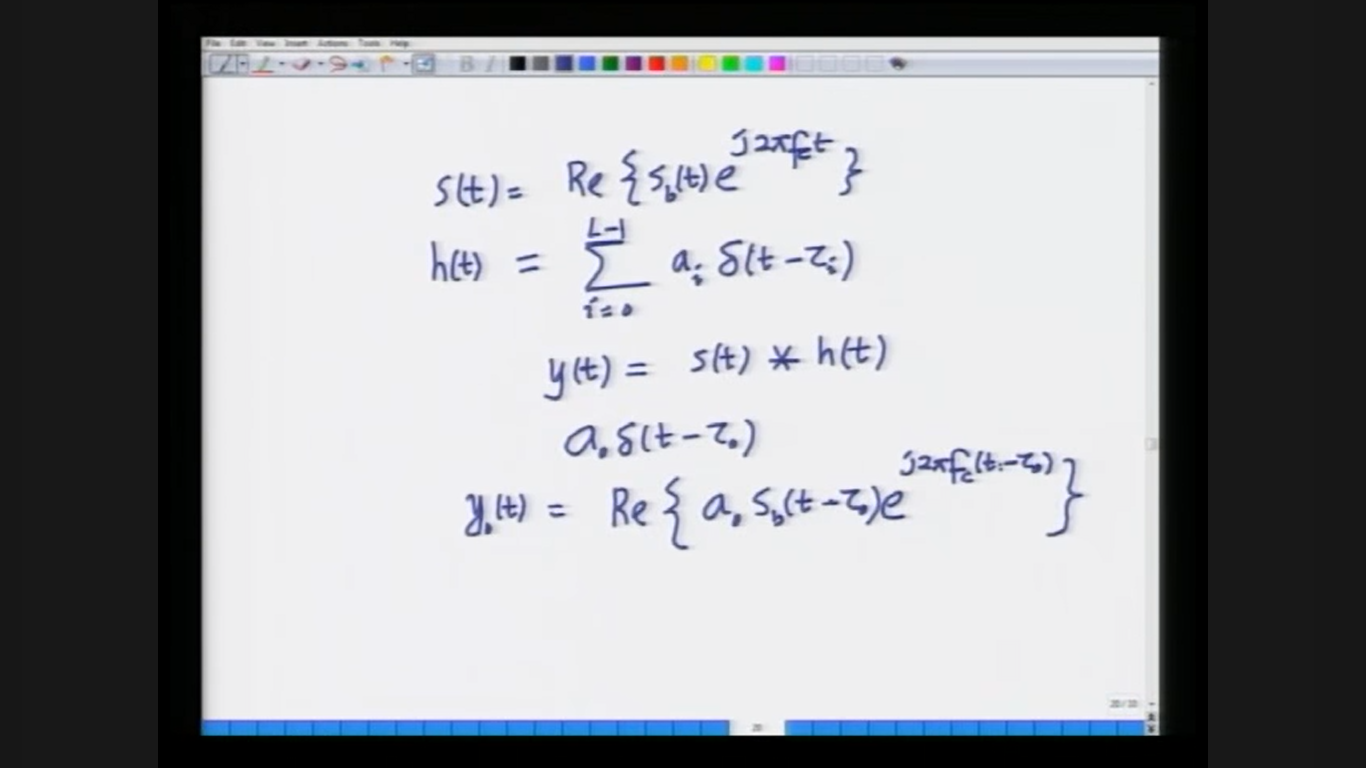 File Edit View Insert Actions Tools Help
s(t) = Re {s_b(t) e^{j2πf_c t}}
h(t) = ∑_{i=0}^{L-1} a_i δ(t-τ_i)
y(t) = s(t) * h(t)
a_0 δ(t-τ_0)
y_0(t) = Re { a_0 s_b(t-τ_0) e^{j2πf_c(t-τ_0)} }
20